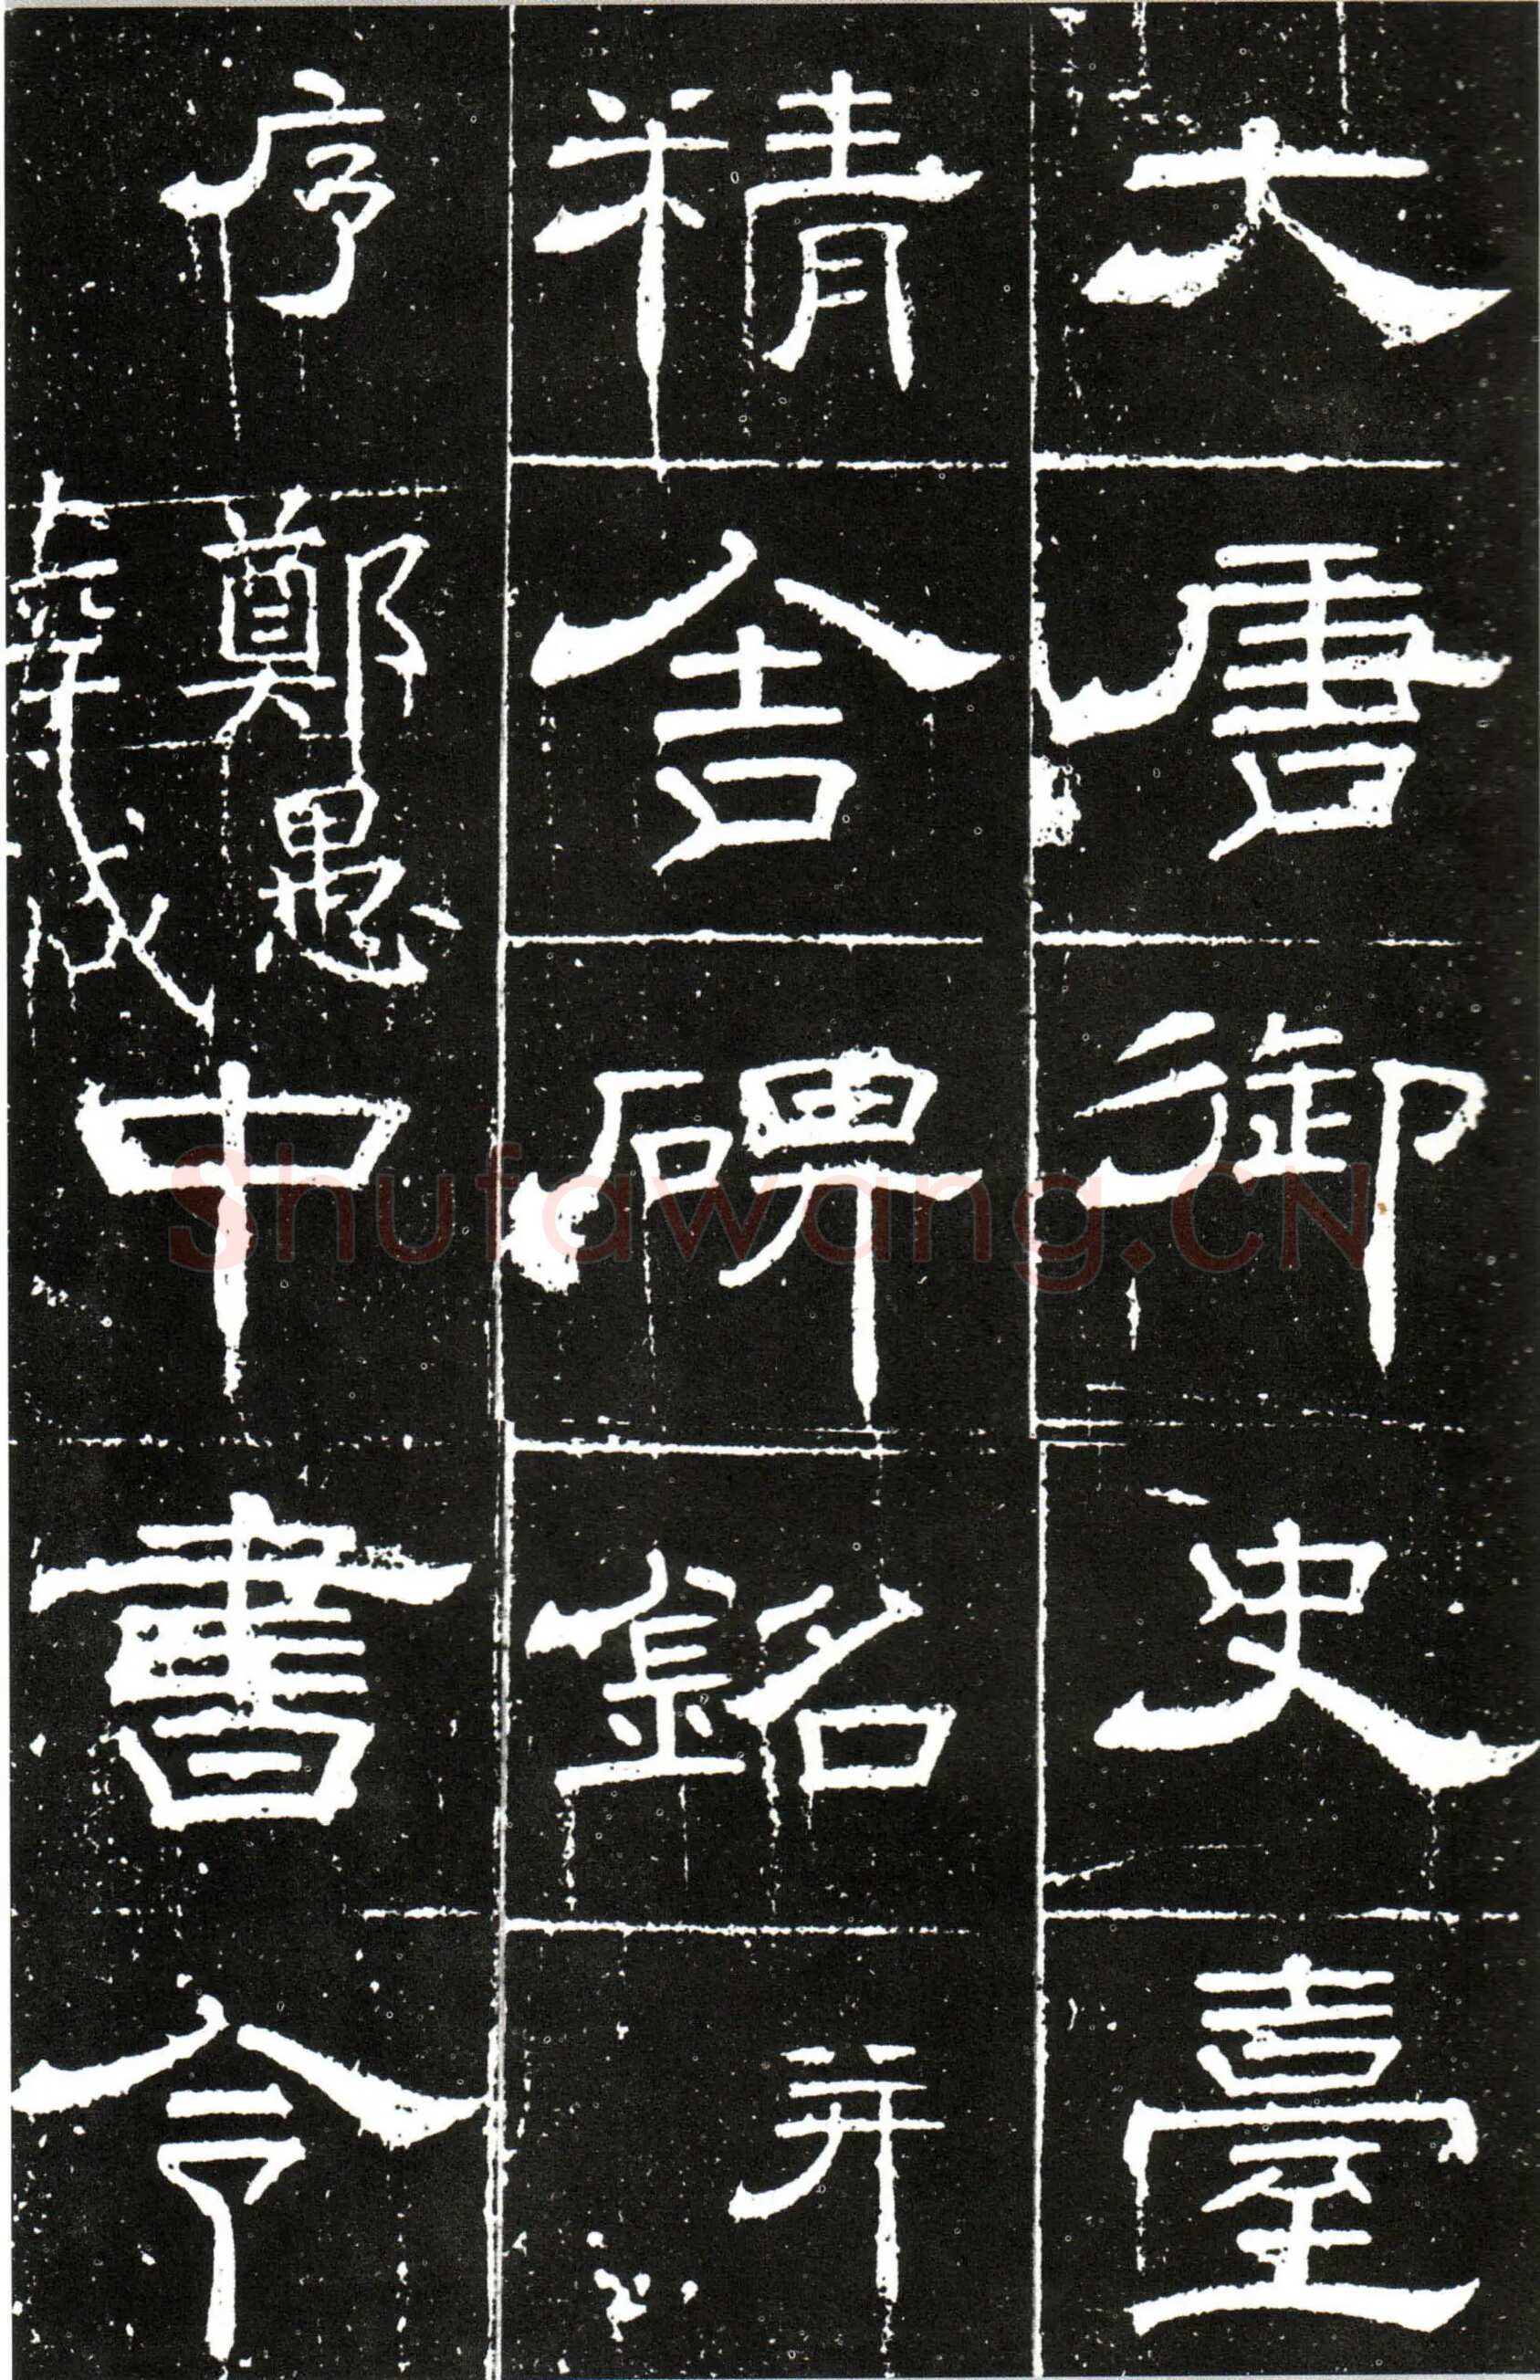 大唐御史臺
精舍碑銘并
序 鄭愚 中書令
Shufawang.CN